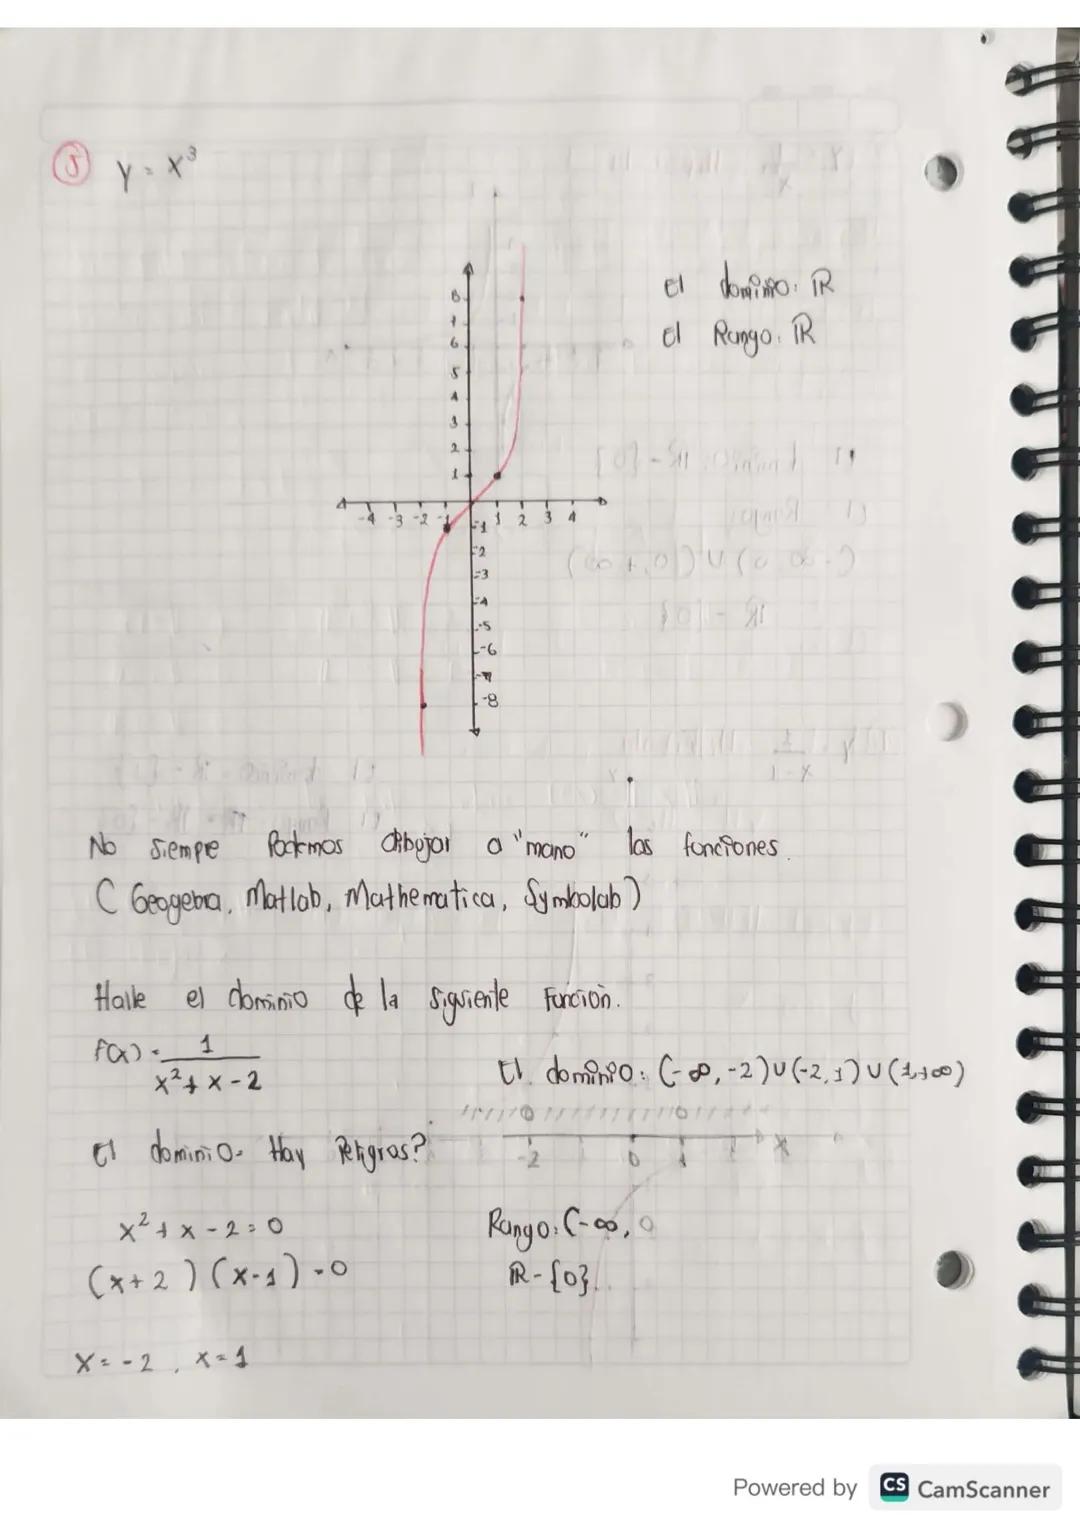 ⑤ y = x³
El dominio: ℝ
El Rango: ℝ
8
7
6
5
4
3
2
1
-4 -3 -2 -1 1 2 3 4
-1
-2
-3
-4
-5
-6
-7
-8
No siempre Podemos dibujar a "mano" las funciones.
( Geogebra, Matlab, Mathematica, Symbolab)
Halle el dominio de la siguiente Función.
f(x) = 1/(x² + x - 2)
El dominio: (-∞, -2) ∪ (-2, 1) ∪ (1, +∞)
-2 0 1 X
El dominio. Hay Peligros?
x² + x - 2 = 0
(x + 2) (x - 1) = 0
x = -2, x = 1
Rango: (-∞, 0
ℝ - {0}.
Powered by CS CamScanner